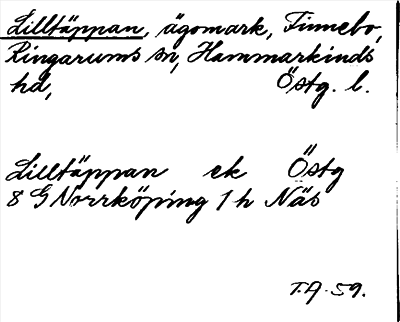 Lilltäppan, ägomark, Finnebo,
Ringarums sn, Hammarkinds
hd, Östg. l.
Lilltäppan ek Östg
8 G Norrköping 1 h Näs
T.A. 59.